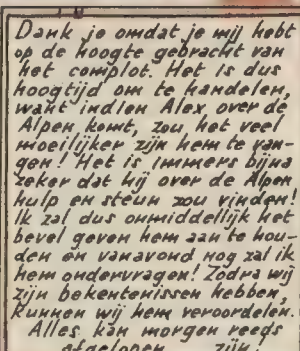 Dank je omdat je mij hebt
op de hoogte gebracht van
het complot. Het is dus
hoogtijd om te handelen,
want indien Alex over de
Alpen komt, zou het veel
moeilijker zijn hem te van-
gen! Het is immers bijna
zeker dat hij over de Alpen
hulp en steun zou vinden!
Ik zal dus onmiddellijk het
bevel geven hem aan te hou-
den en vanavond nog zal ik
hem ondervragen! Zodra wij
zijn bekentenissen hebben,
kunnen wij hem veroordelen.
Alles kan morgen reeds
afgelopen zijn.